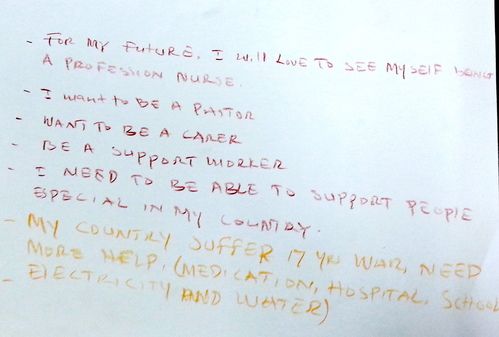 - FOR MY FUTURE, I will LOVE TO SEE MYSELF BEING
A PROFESSION NURSE.
- I want to BE A PASTOR
- WANT TO BE A CARER
- BE A SUPPORT WORKER
- I NEED TO BE ABLE TO SUPPORT PEOPLE
ESPECIAL IN MY COUNTRY.
- MY COUNTRY SUFFER 17 YR WAR, NEED
MORE HELP, (MEDICATION, HOSPITAL, SCHOOL
- ELECTRICITY AND WATER)